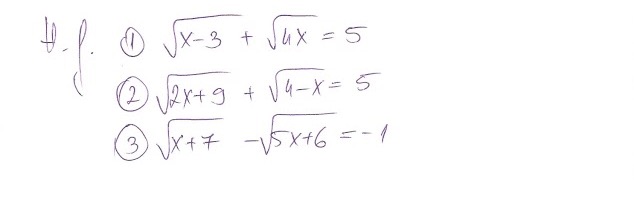 H.f. ① √(x-3) + √(4x) = 5
② √(2x+9) + √(4-x) = 5
③ √(x+7) - √(5x+6) = -1